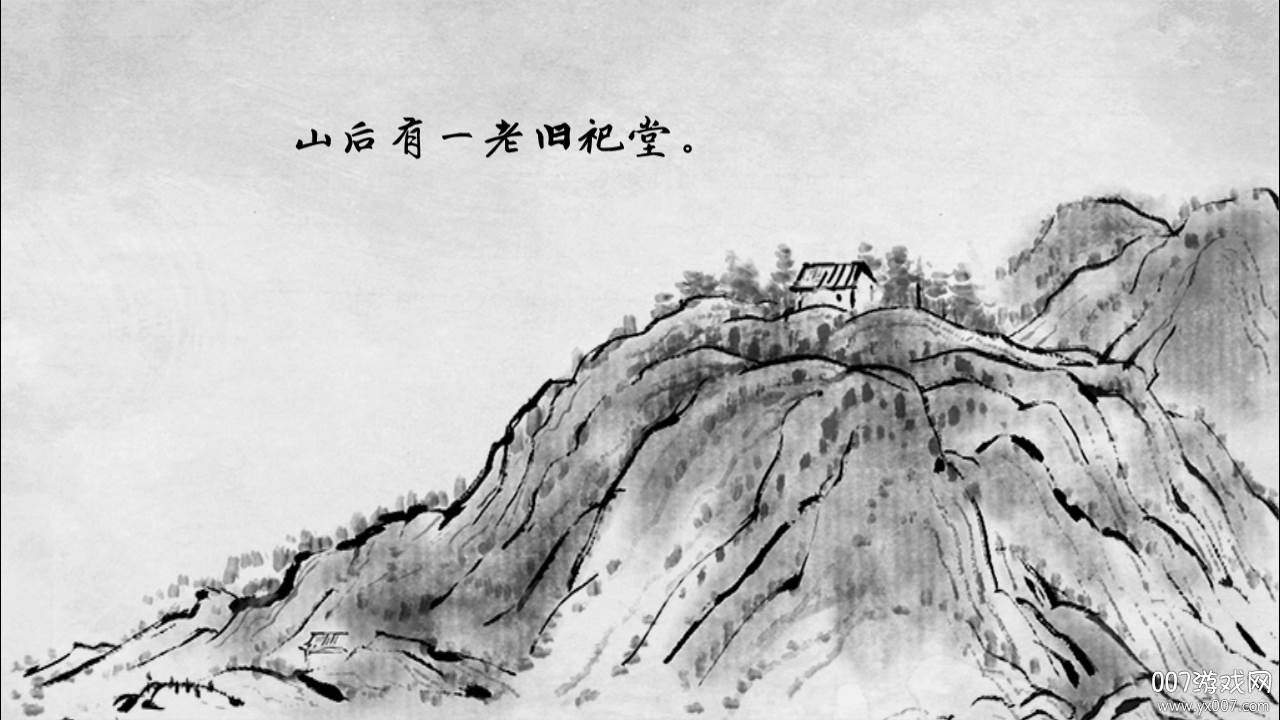 山后有一老旧祀堂。
007游戏网
www.yx007.com